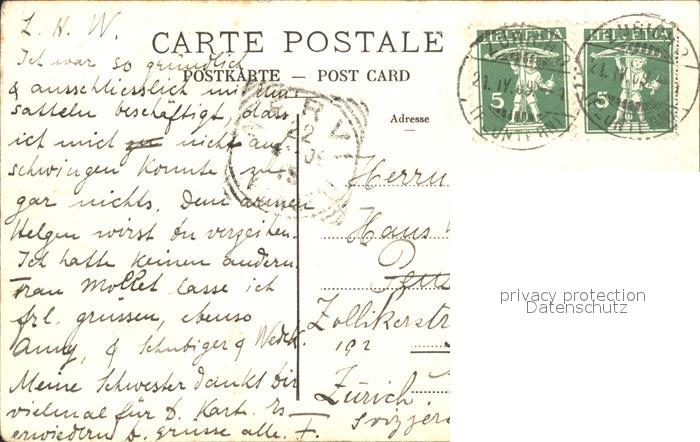 L. H. W.
CARTE POSTALE
Ich war so gründlich
POSTKARTE — POST CARD
& ausschliesslich mit
satteln beschäftigt, dass
ich mich nicht auf
schwingen konnte, zu
gar nichts. Dem armen
Helgen wirst du verzeihen.
Ich hatte keinen andern.
Frau Mollet lasse ich
frl. grüssen, ebenso
Anny, & Schubiger & Wedek.
Meine Schwester dankt Dir
vielmal für d. Karte. Es
erwiedern d. grüsse alle. F.
Adresse
Herrn
Hans
Pens
Zollikerstr
192
Zürich
Svizzera
HELVETIA
5
HELVETIA
5
21. IV. 09
21. IV. 09
NERVI
privacy protection
Datenschutz